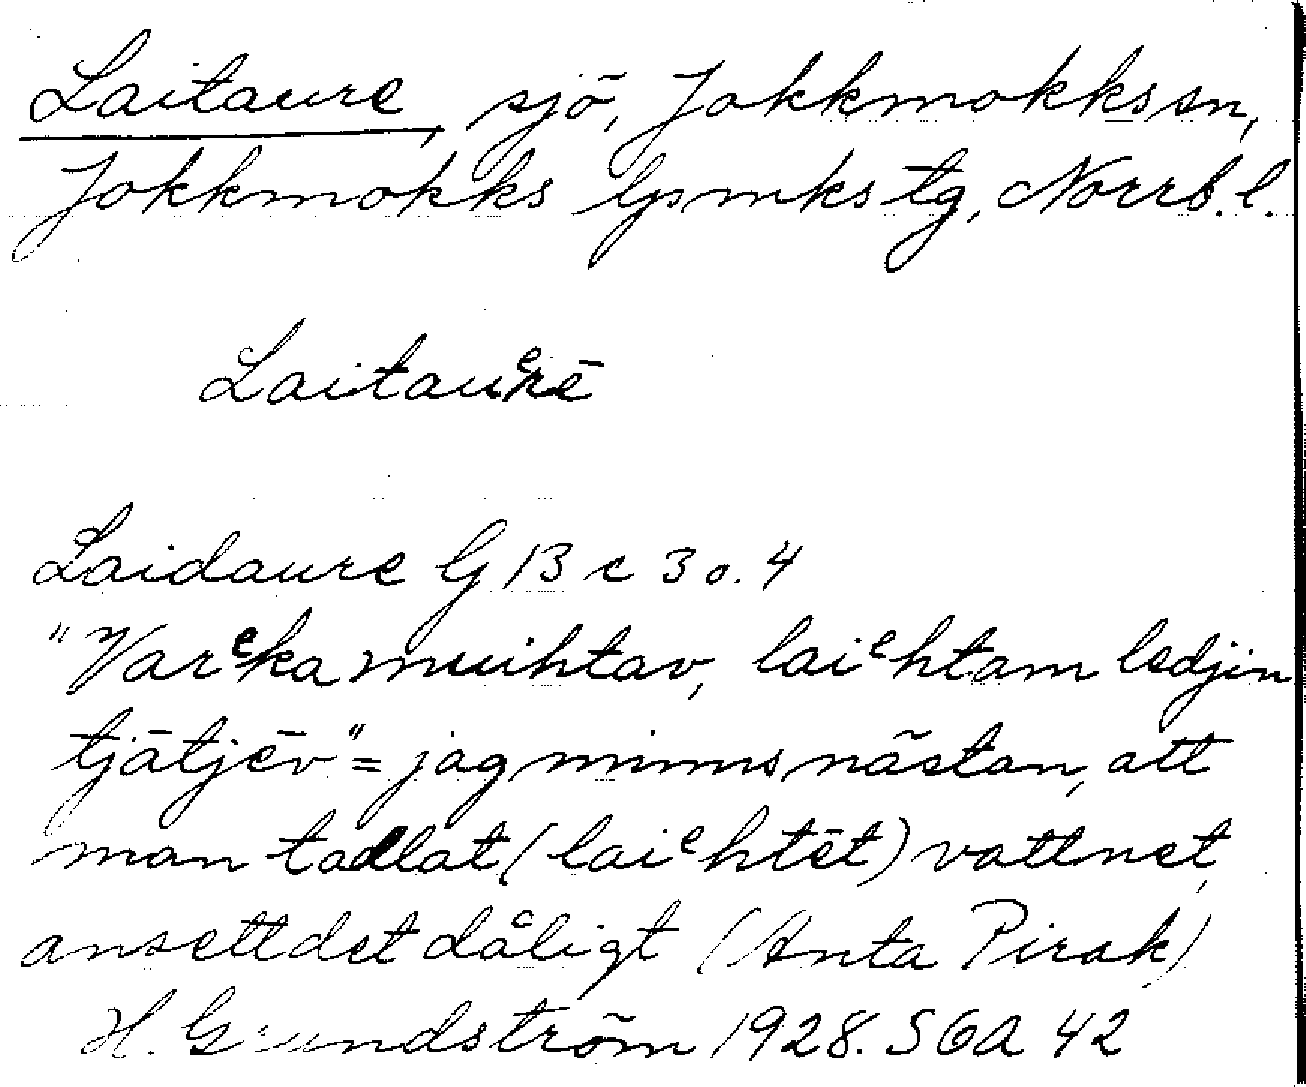 Laitaure, sjö, Jokkmokks sn,
Jokkmokks lpmks tg, Norrb. l.
Laitauᵉrē
Laidaure G 13 c 3 o. 4
"Varᵉka muihtav, laiᵉhtam ledjin
tjātjēv" = jag minns nästan, att
man tadlat (laiᵉhtēt) vattnet,
ansett det dåligt (Anta Pirak)
H. Grundström 1928. SGA 42